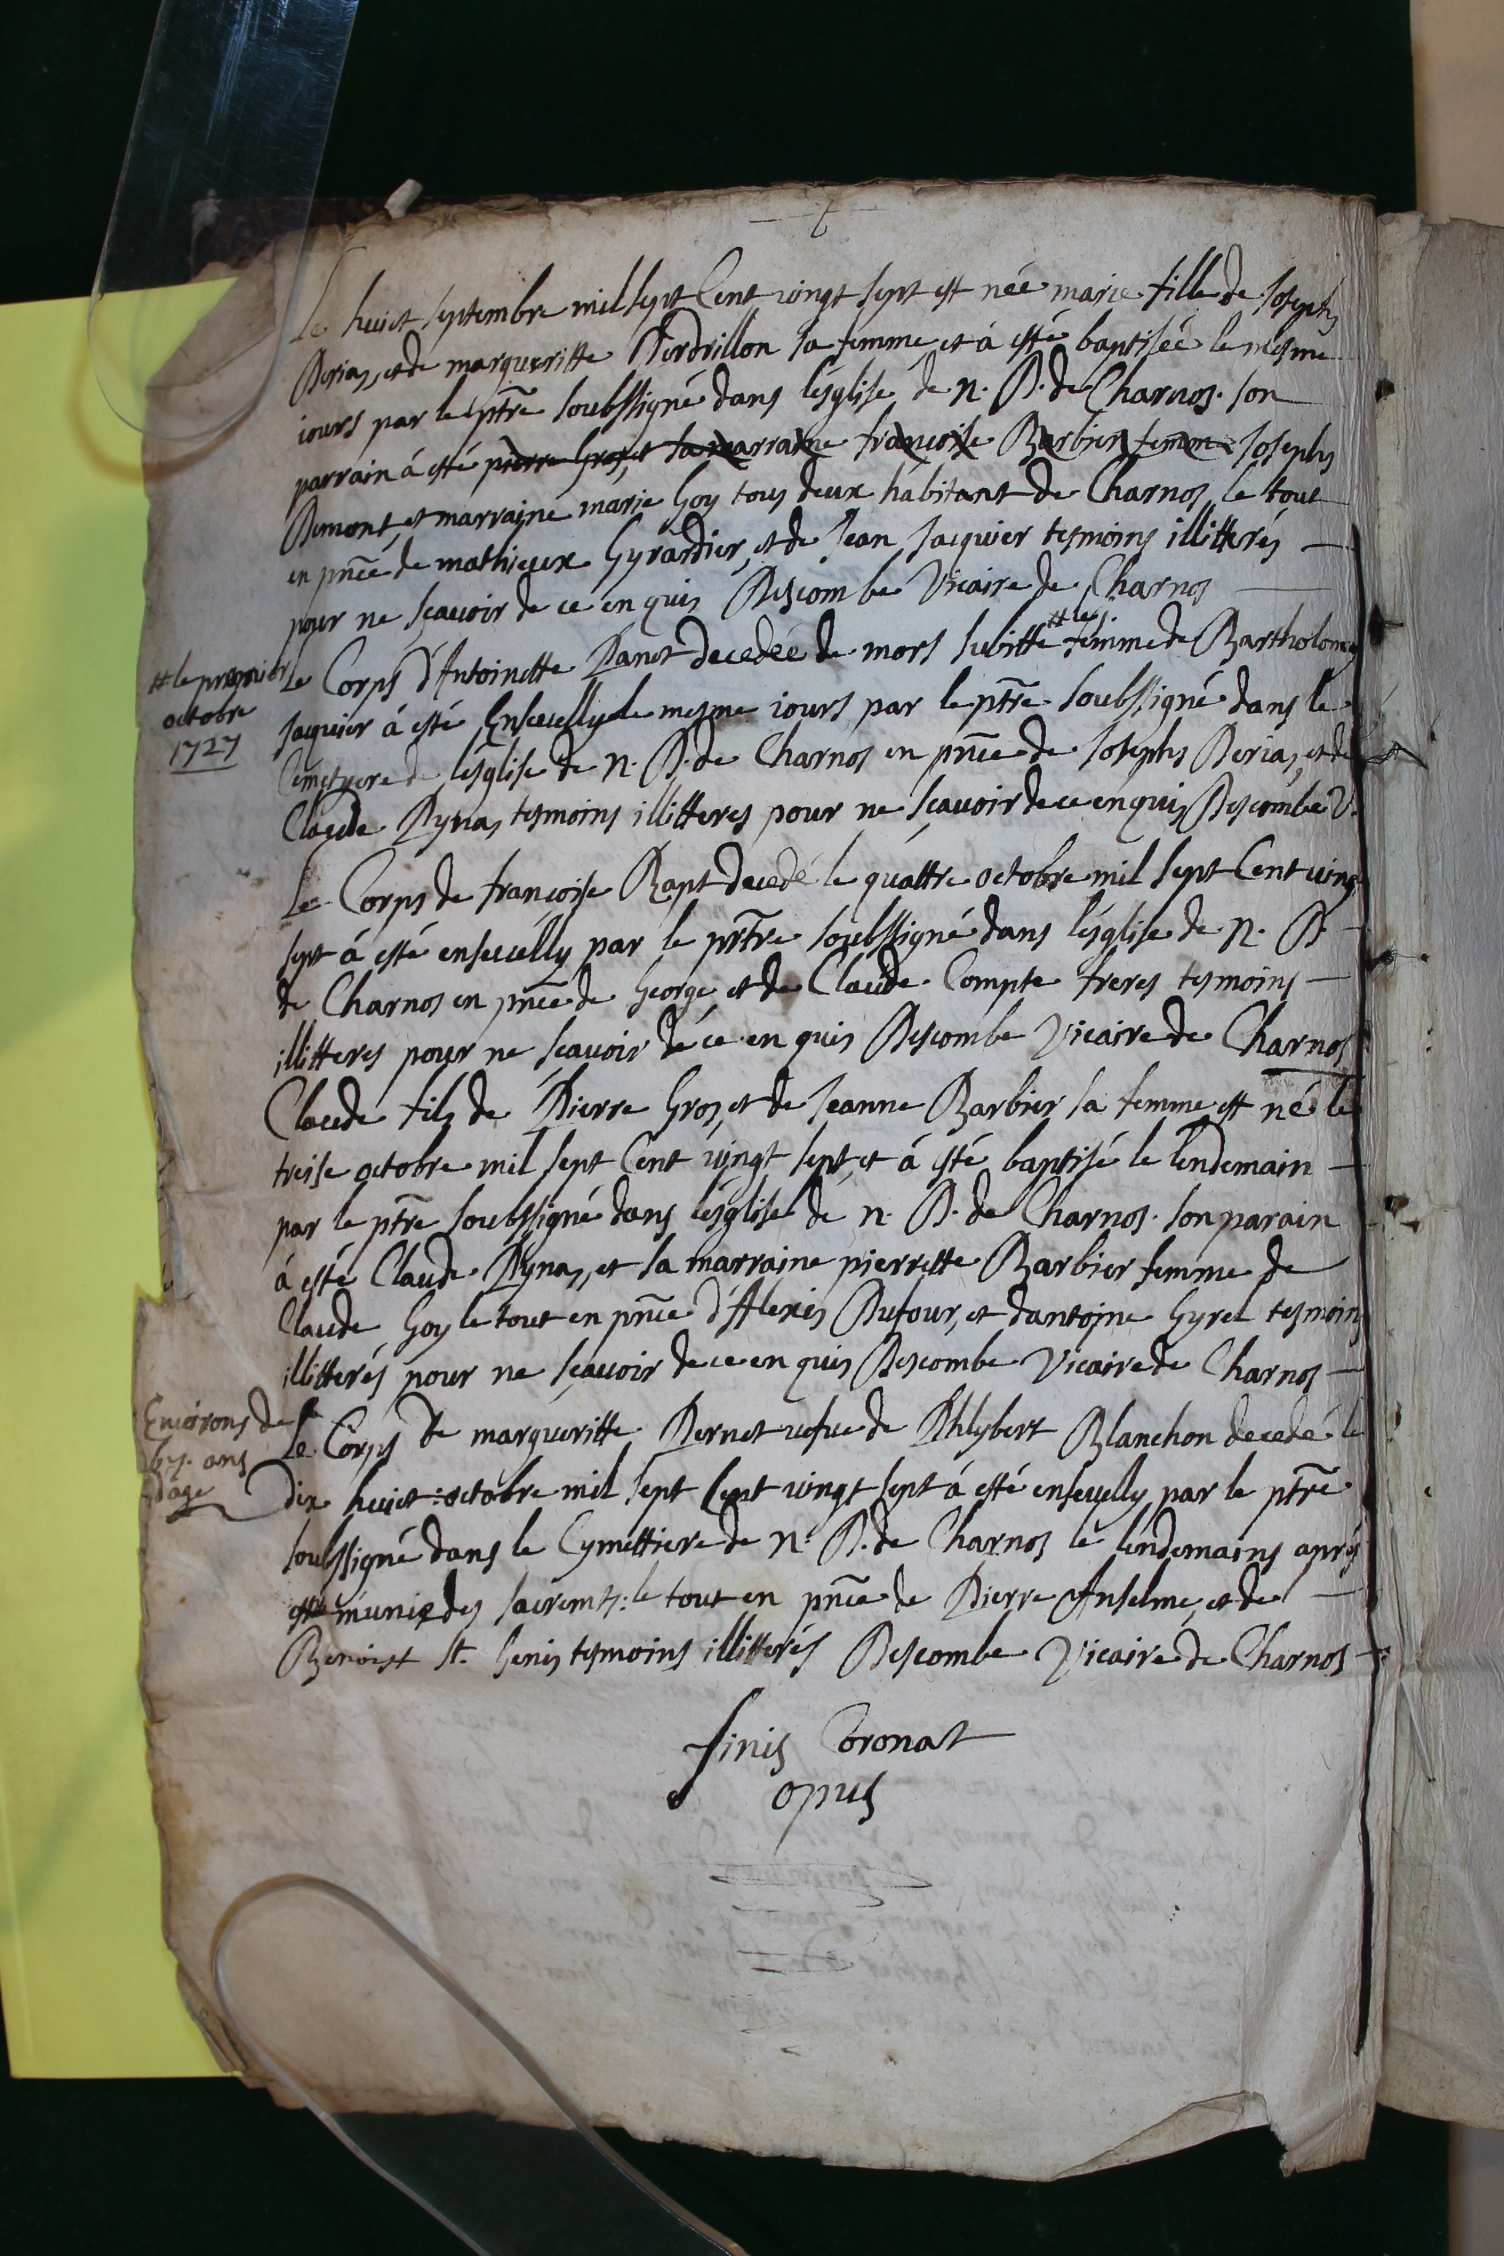 Le huict septembre mil sept Cent vingt sept est née marie fille de Josephs
Perias, et de margueritte Perdrillon sa femme, et á esté baptisée le mesme
iours par le ptre soubssigné dans lésglise de N. D. de Charnos. son
parrain á esté pierre Gros, et sa marraine francoise Barbier femme Josephs
Demont, et marraine marie Goy tous deux habitant de Charnos, le tout
en pnce de mathieux Gyrardier, et de Jean Jacquier tesmoins illitterés
pour ne sçavoir de ce enquis Descombe Vicaire de Charnos
Le Corps d'Antoinette Panet decedée de mors subitte # les femme de Bartholomey
# le premier
octobre
1727
Jaquier á esté Ensevelly le mesme iours par le ptre soubssigné dans le
Cemetyere de lésglise de N. D. de Charnos en pnce de Josephs Perias, et de
Claude Pynas tesmoins illitteres pour ne sçavoir de ce enquis Descombe V.
Le Corps de francoise Rapt decedé le quattre octobre mil sept Cent ving
sept á esté ensevelly par le prtre soubssigné dans lésglise de N. D.
de Charnos en pnce de George et de Claude Compte freres tesmoins
illitteres pour ne scavoir de ce enquis Descombe Vicaire de Charnos
Claude fils de Pierre Gros, et de Jeanne Barbier sa femme est né le
treise octobre mil sept Cent vingt sept, et á esté baptisé le lendemain
par le ptre soubssigné dans lésglise de N. D. de Charnos. son parain
á esté Claude Pynas, et sa marraine pierrette Barbier femme de
Claude Goy le tout en pnce d'Alexis Dufour, et dantoine Gyrel tesmoins
illitterés pour ne sçavoir de ce enquis Descombe Vicaire de Charnos
Environs de
67. ans
dage
Le Corps de margueritte Pernet vefve de Phlybert Blanchon decedé le
dix huict octobre mil sept Cent vingt sept á esté ensevelly par le ptre
soubssigné dans le Cymettiere de N. D. de Charnos le lendemains aprés
munie des sacremts: le tout en pnce de Pierre Anselme, et de
Benoist St. Genis tesmoins illitterés Descombe Vicaire de Charnos
finis Coronat
opus